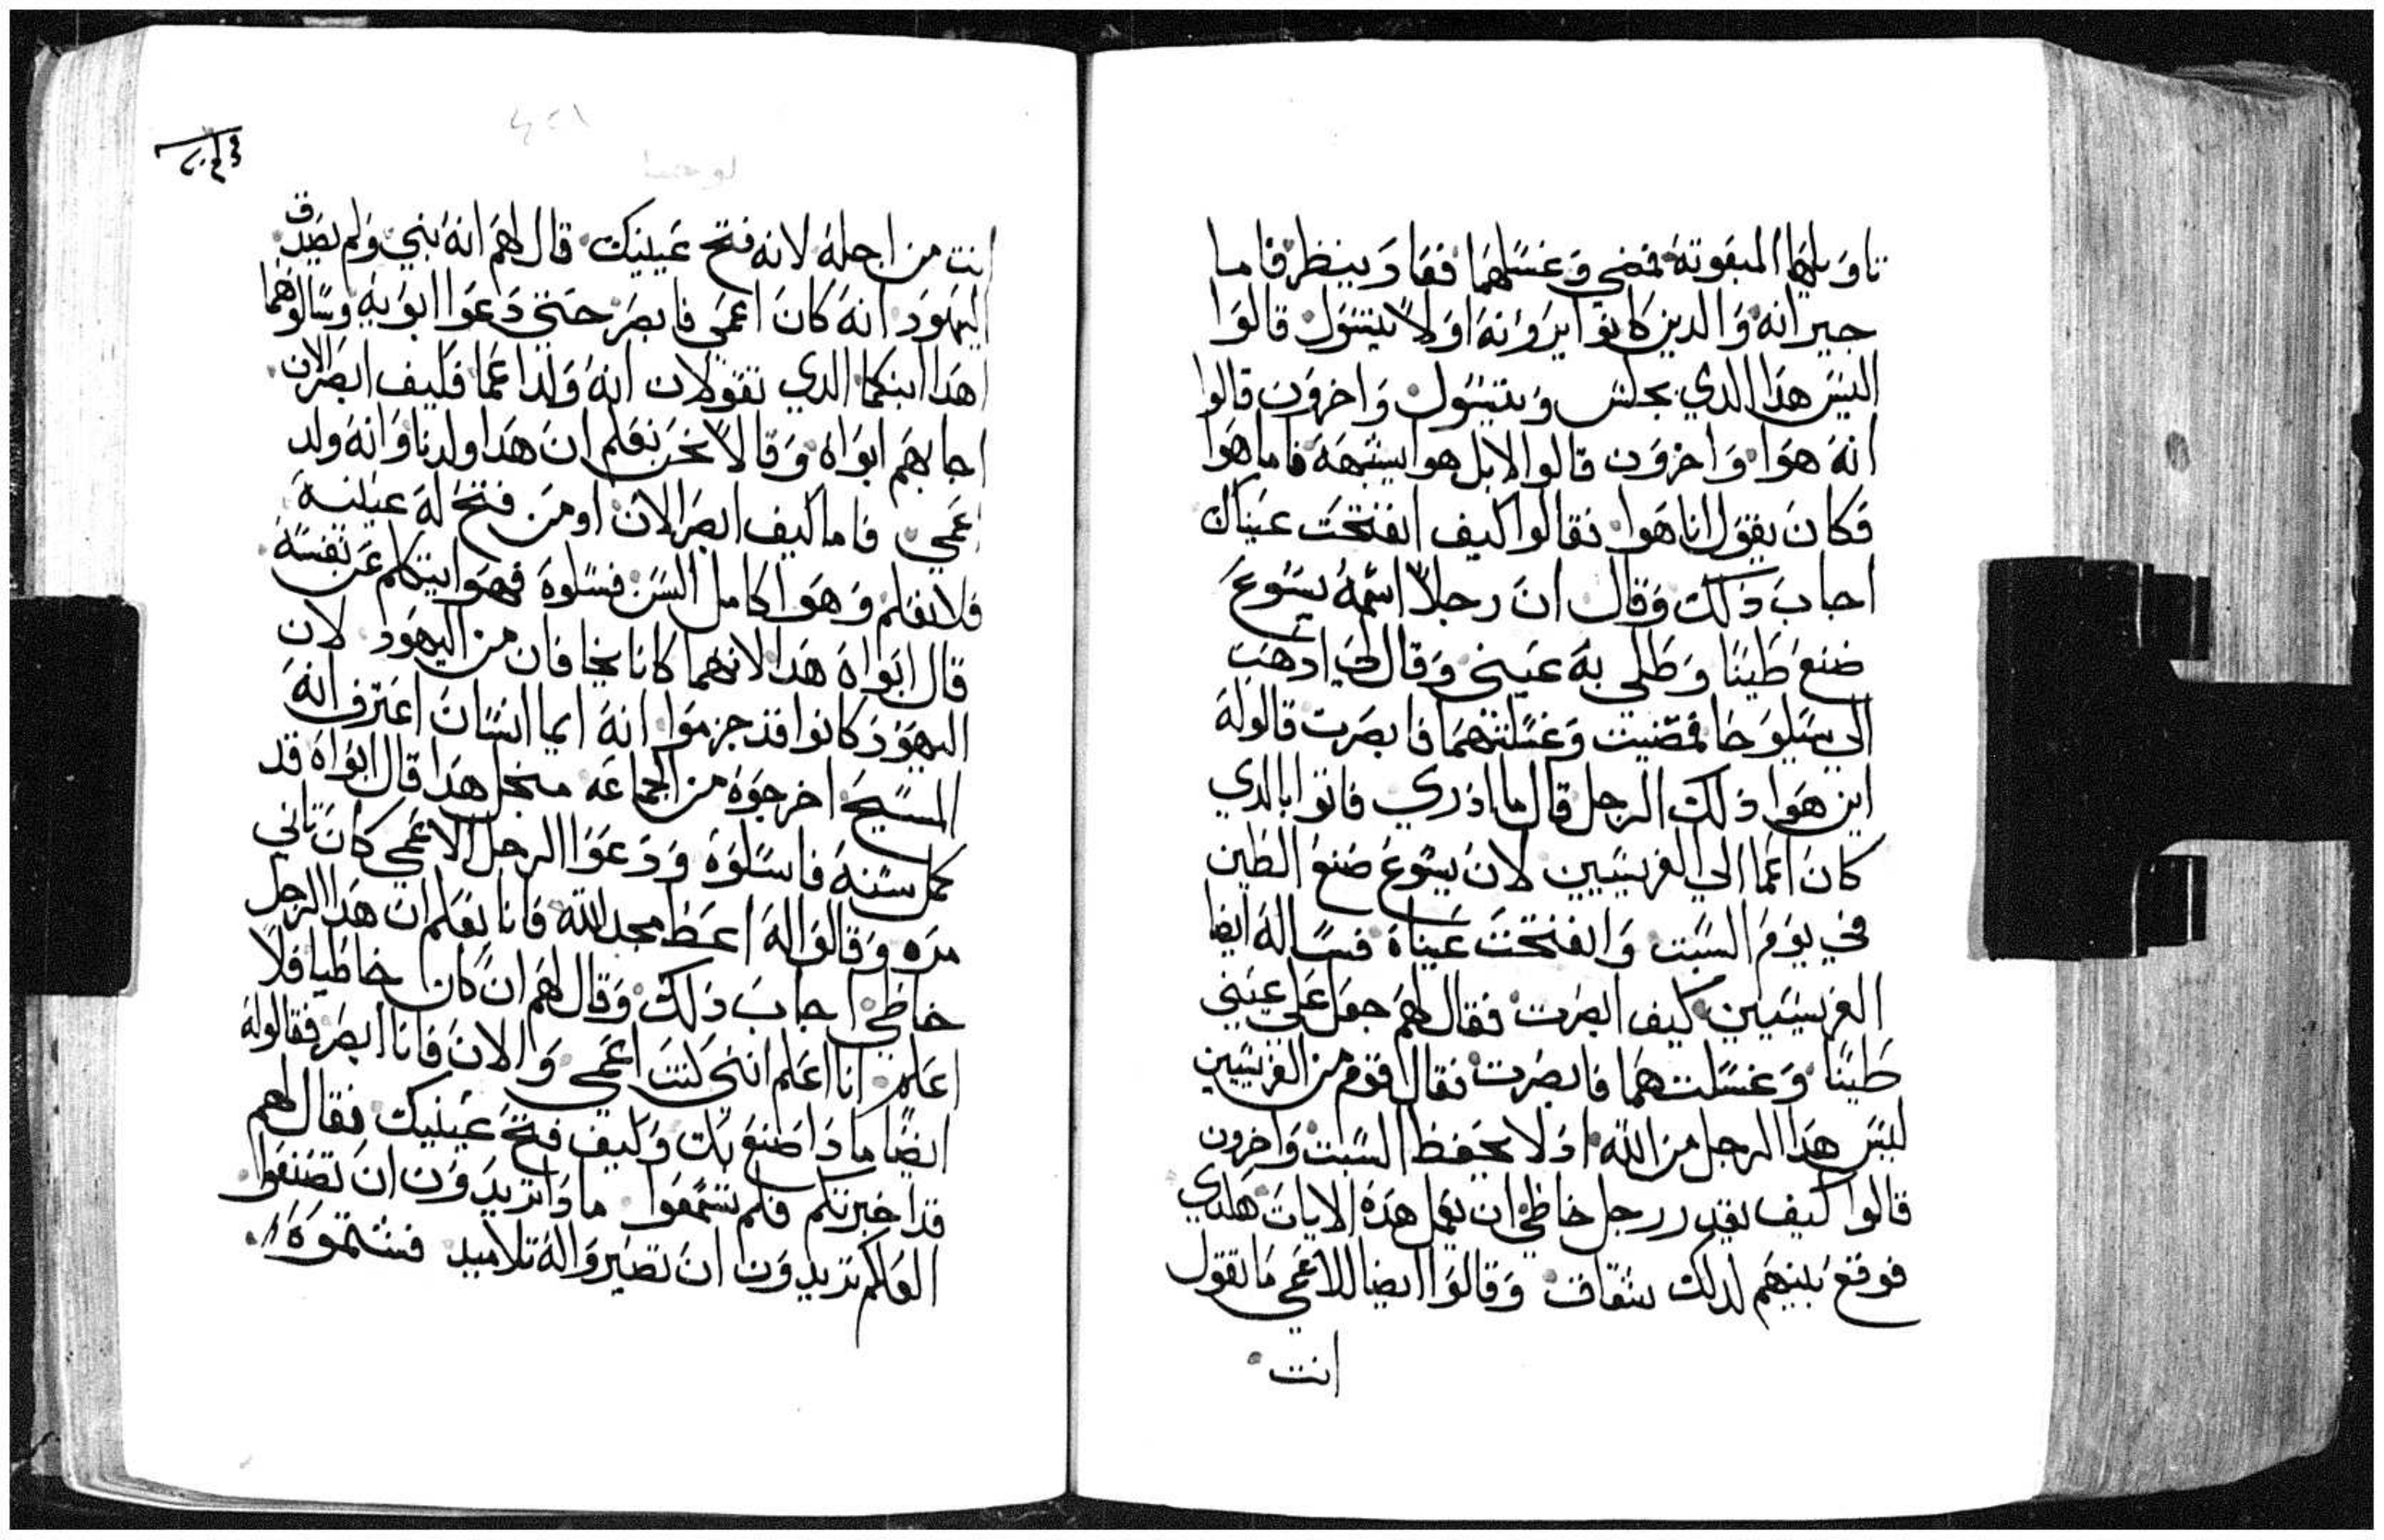 تاويلها المبعوتة فمضي وغسلهما فعاد ينظر فاما
جيرانه والدين كانوا يرونه اولا يتسول قالوا
اليس هدا الدي يجلس ويتسول واخرون قالوا
انه هوا واخرون قالوا لا بل هوا يشبهه فاما هوا
فكان يقول انا هوا فقالوا كيف انفتحت عيناك
اجاب ذلك وقال ان رجلا اسمه يسوع
صنع طينا وطلي به عيني وقال لي اذهب
الي سيلوحا فمضيت وغسلتهما فابصرت قالوله
اين هوا ذلك الرجل قال ما ادري فاتوا بالدي
كان اعما الي الفريسيين لان يسوع صنع الطين
في يوم السبت وانفتحت عيناه فساله ايضا
الفريسيين كيف ابصرت فقال لهم جعل علي عيني
طينا وغسلتهما فابصرت فقال قوم من الفريسيين
ليس هدا الرجل من الله اد لا يحفظ السبت واخرون
قالوا كيف يقدر رجل خاطي ان يعمل هده الايات هكدي
فوقع بينهم لدلك شقاق وقالوا ايضا للاعمي ما تقول
انت
لوحنا
انت من اجله لانه فتح عينيك قال لهم انه نبي ولم يصدق
اليهود انه كان اعمي فابصر حتي دعوا ابويه وسالوهما
اهدا ابنكما الدي تقولان انه ولد اعما فكيف ابصر الان
اجابهم ابواه وقالا نحن نعلم ان هدا ولدنا وانه ولد
اعمي فاما كيف ابصر الان او من فتح له عينيه
فلا نعلم وهوا كامل السن فسلوه فهوا يتكلم عن نفسه
قال ابواه هدا لانهما كانا يخافان من اليهود لان
اليهود كانوا قد جزموا انه ايما انسان اعترف انه
المسيح اخرجوه من الجماعه منجل هدا قال ابواه قد
كمل سنه فاسلوه ودعوا الرجل الاعمي كان تاني
مره وقالوا له اعط مجد الله فانا نعلم ان هدا الرجل
خاطي اجاب ذلك وقال لهم ان كان خاطيا فلا
اعلم انا اعلم انني كنت اعمي والان فانا ابصر فقالوله
ايضا ما دا صنع بك وكيف فتح عينيك فقال لهم
قد اخبرتكم فلم تسمعوا ما دا تريدون ان تصنعوا
العلكم تريدون ان تصيروا له تلاميد فشتموه